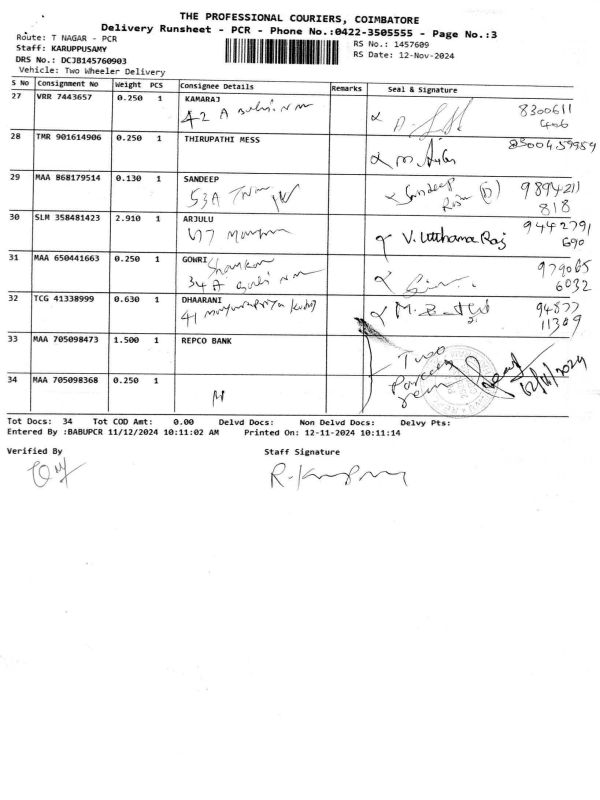 THE PROFESSIONAL COURIERS, COIMBATORE
Delivery Runsheet - PCR - Phone No.:0422-3505555 - Page No.:3
Route: T NAGAR - PCR
RS No.: 1457609
Staff: KARUPPUSAMY
RS Date: 12-Nov-2024
DRS No.: DCJB145760903
Vehicle: Two Wheeler Delivery
S No Consignment No Weight PCS Consignee Details Remarks Seal & Signature
27 VRR 7443657 0.250 1 KAMARAJ
42 A
8300611
406
28 TMR 901614906 0.250 1 THIRUPATHI MESS
29 MAA 868179514 0.130 1 SANDEEP
53A
Sandeep
9894211
818
30 SLM 358481423 2.910 1 ARJULU
9442791
690
31 MAA 650441663 0.250 1 GOWRI
34 A
979065
6032
32 TCG 41338999 0.630 1 DHAARANI
41
94877
11309
33 MAA 705098473 1.500 1 REPCO BANK
Two
34 MAA 705098368 0.250 1
12/11/2024
Tot Docs: 34 Tot COD Amt: 0.00 Delvd Docs: Non Delvd Docs: Delvy Pts:
Entered By :BABUPCR 11/12/2024 10:11:02 AM Printed On: 12-11-2024 10:11:14
Verified By
Staff Signature